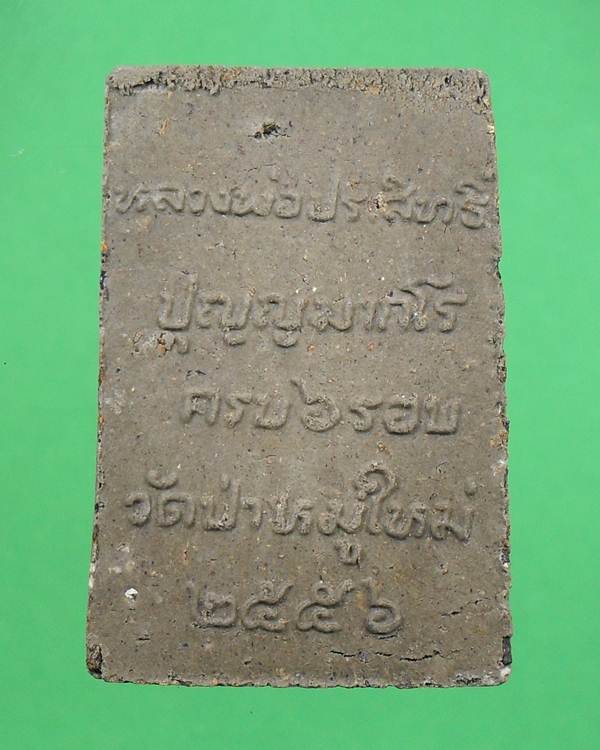 หลวงพ่อประสิทธิ์
ปุญญมากโร
ครบ๖รอบ
วัดป่าหมู่ใหม่
๒๕๕๖